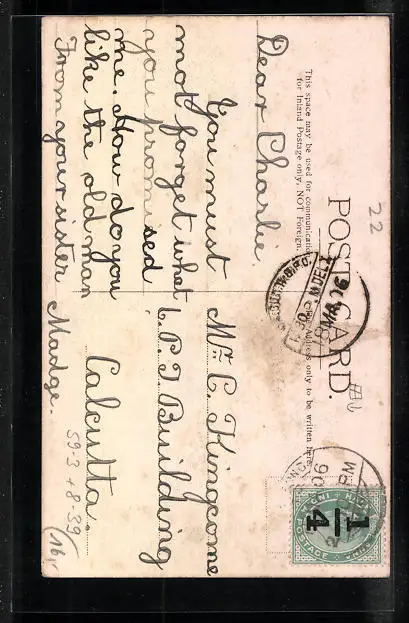 POST CARD.
This space may be used for communication
for Inland Postage only, NOT Foreign.
Address only to be written here
22
Dear Charlie
You must
not forget what
you promised
me. How do you
like the old man
From your sister
Madge.
Mr C. Kingcome
6. P. T. Building
Calcutta.
59-3 + 8-39
(16)
1/4
INDIA
POSTAGE